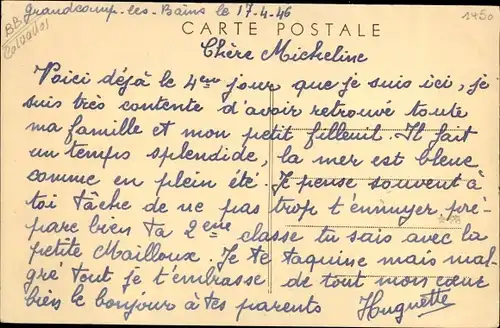 Grandcamp-les-Bains le 17-4-46
BB
Calvados
1450
CARTE POSTALE
Chère Micheline
Voici déjà le 4ème jour que je suis ici, je
suis très contente d'avoir retrouvé toute
ma famille et mon petit filleul. Il fait
un temps splendide, la mer est bleue
comme en plein été. Je pense souvent à
toi tâche de ne pas trop t'ennuyer, pré-
pare bien ta 2ème classe tu sais avec la
petite Mailloux. Je te taquine mais mal-
gré tout je t'embrasse de tout mon cœur
bien le bonjour à tes parents Huguette